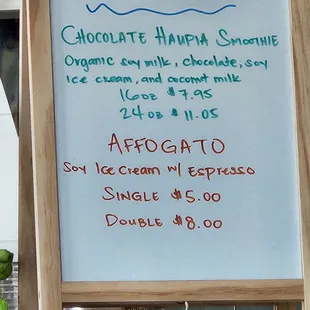 Chocolate Haupia Smoothie
Organic soy milk, chocolate, soy
Ice cream, and coconut milk
16oz $7.95
24oz $11.05
AFFOGATO
Soy Ice Cream w/ Espresso
SINGLE $5.00
DOUBLE $8.00